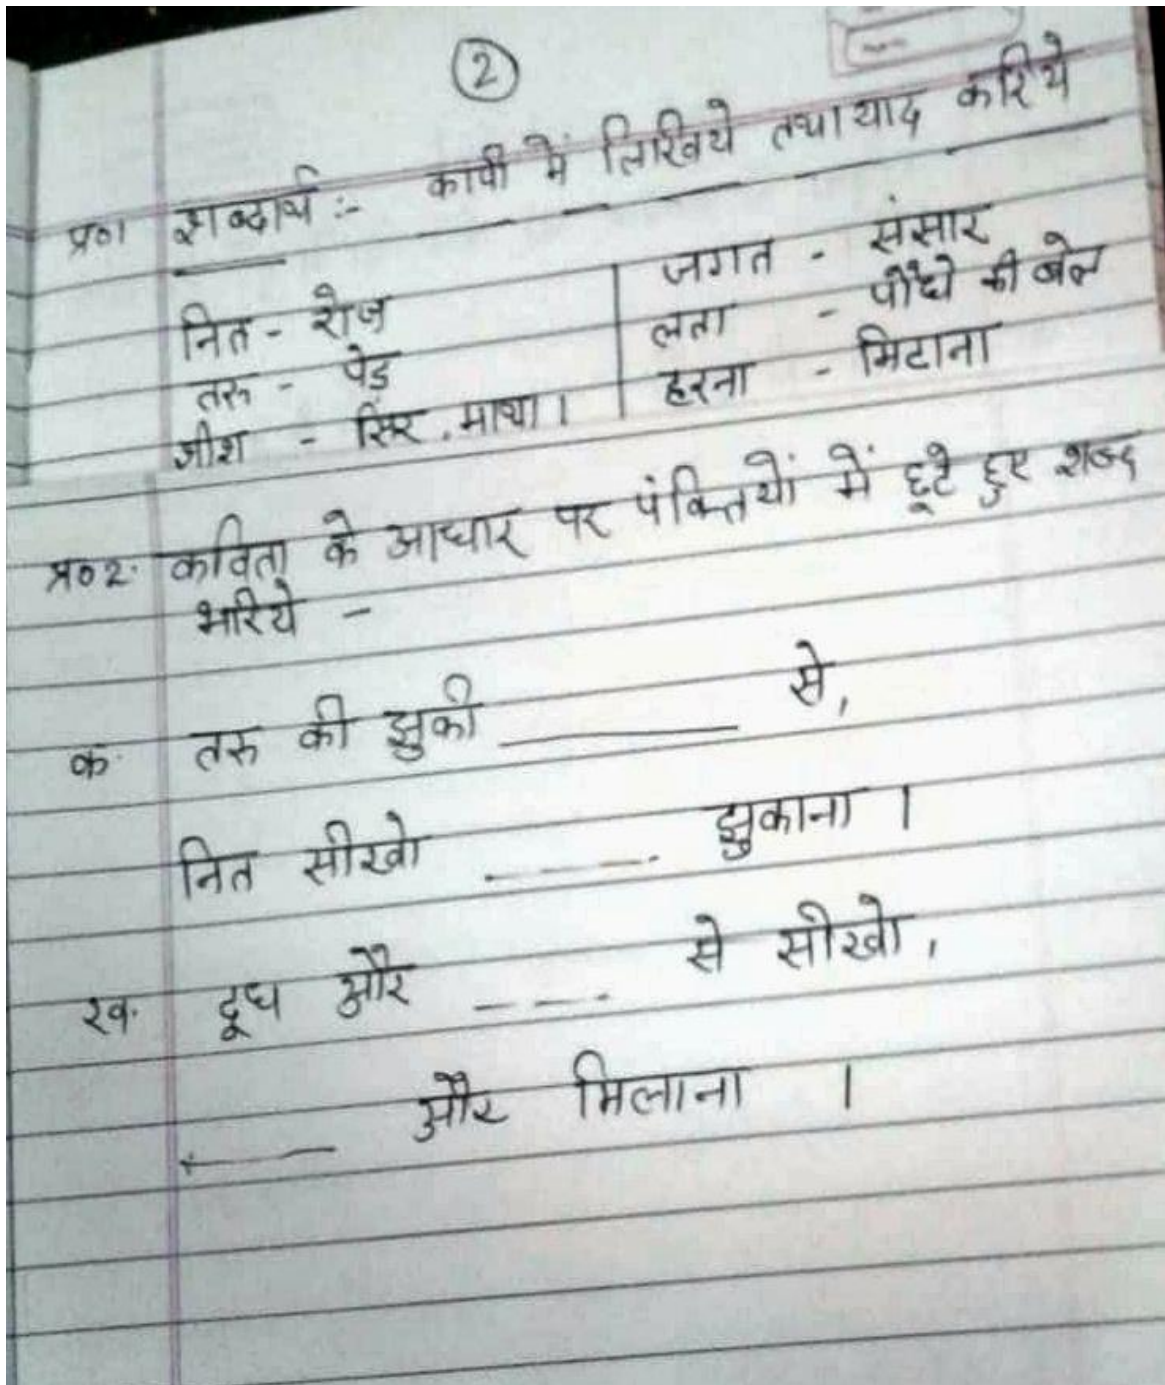 2
प्र०1 शब्दार्थ :- कापी में लिखिये तथा याद करिये
नित - रोज़ | जगत - संसार
तरू - पेड़ | लता - पौधे की बेल
शीश - सिर, माथा। | हरना - मिटाना
प्र०2. कविता के आधार पर पंक्तियों में छूटे हुए शब्द
भरिये -
क. तरू की झुकी ______ से,
नित सीखो ______ झुकाना ।
ख. दूध और ______ से सीखो,
______ और मिलाना ।